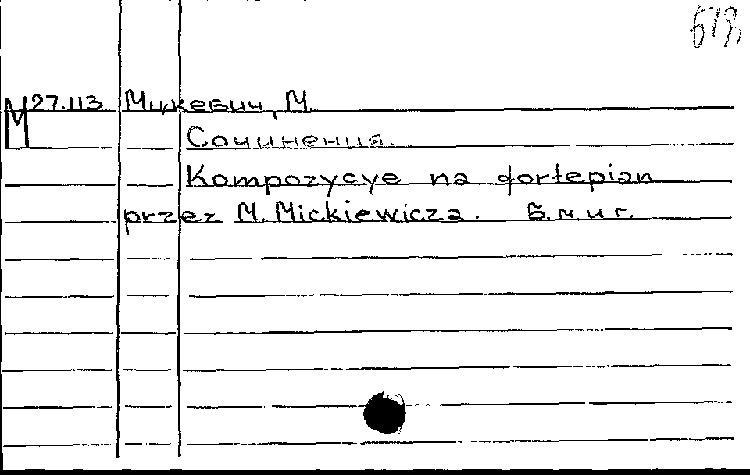 М 27.113 Мицкевич, М.
Сочинения.
Kompozycye na fortepian
przez M. Mickiewicza. Б.м.и г.